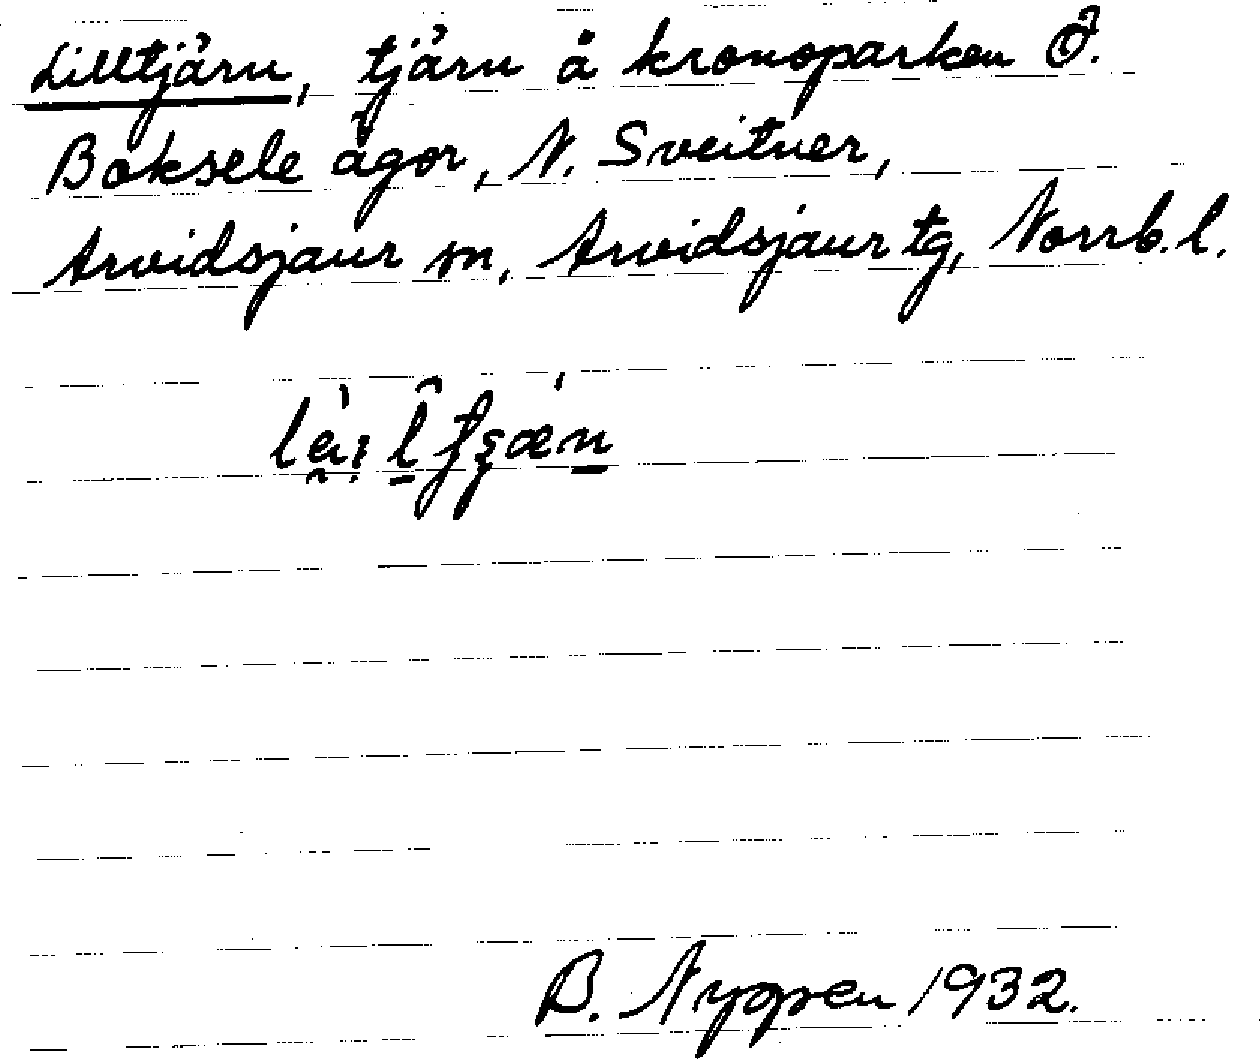 Lilltjärn, tjärn å kronoparken Ö.
Baksele ägor, N. Sveitner,
Arvidsjaur sn, Arvidsjaur tg, Norrb. l.
B. Nygren 1932.